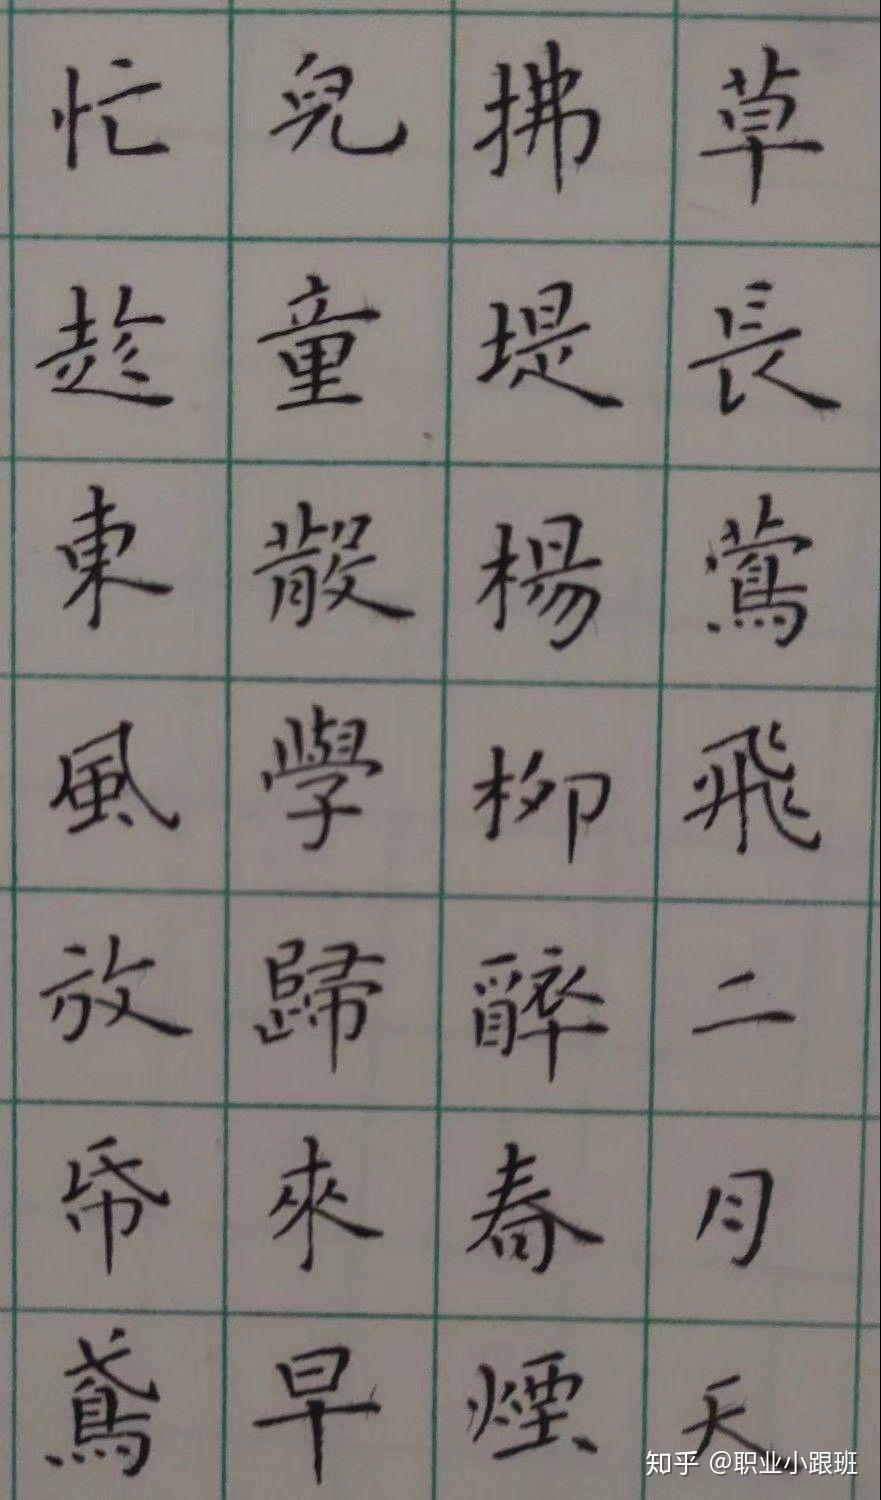 草長鶯飛二月天
拂堤楊柳醉春煙
兒童散學歸來早
忙趁東風放帋鳶
知乎 @职业小跟班